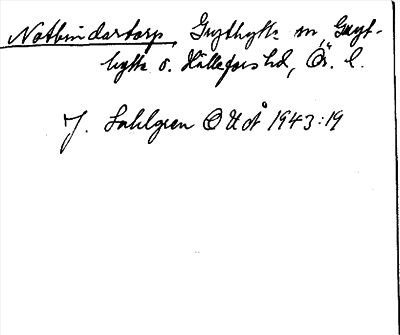 Notbindartorp, Grythytte sn, Gryt-
hytte o. Hällefors hd, Ör. l.
J. Sahlgren OUÅ 1943:19